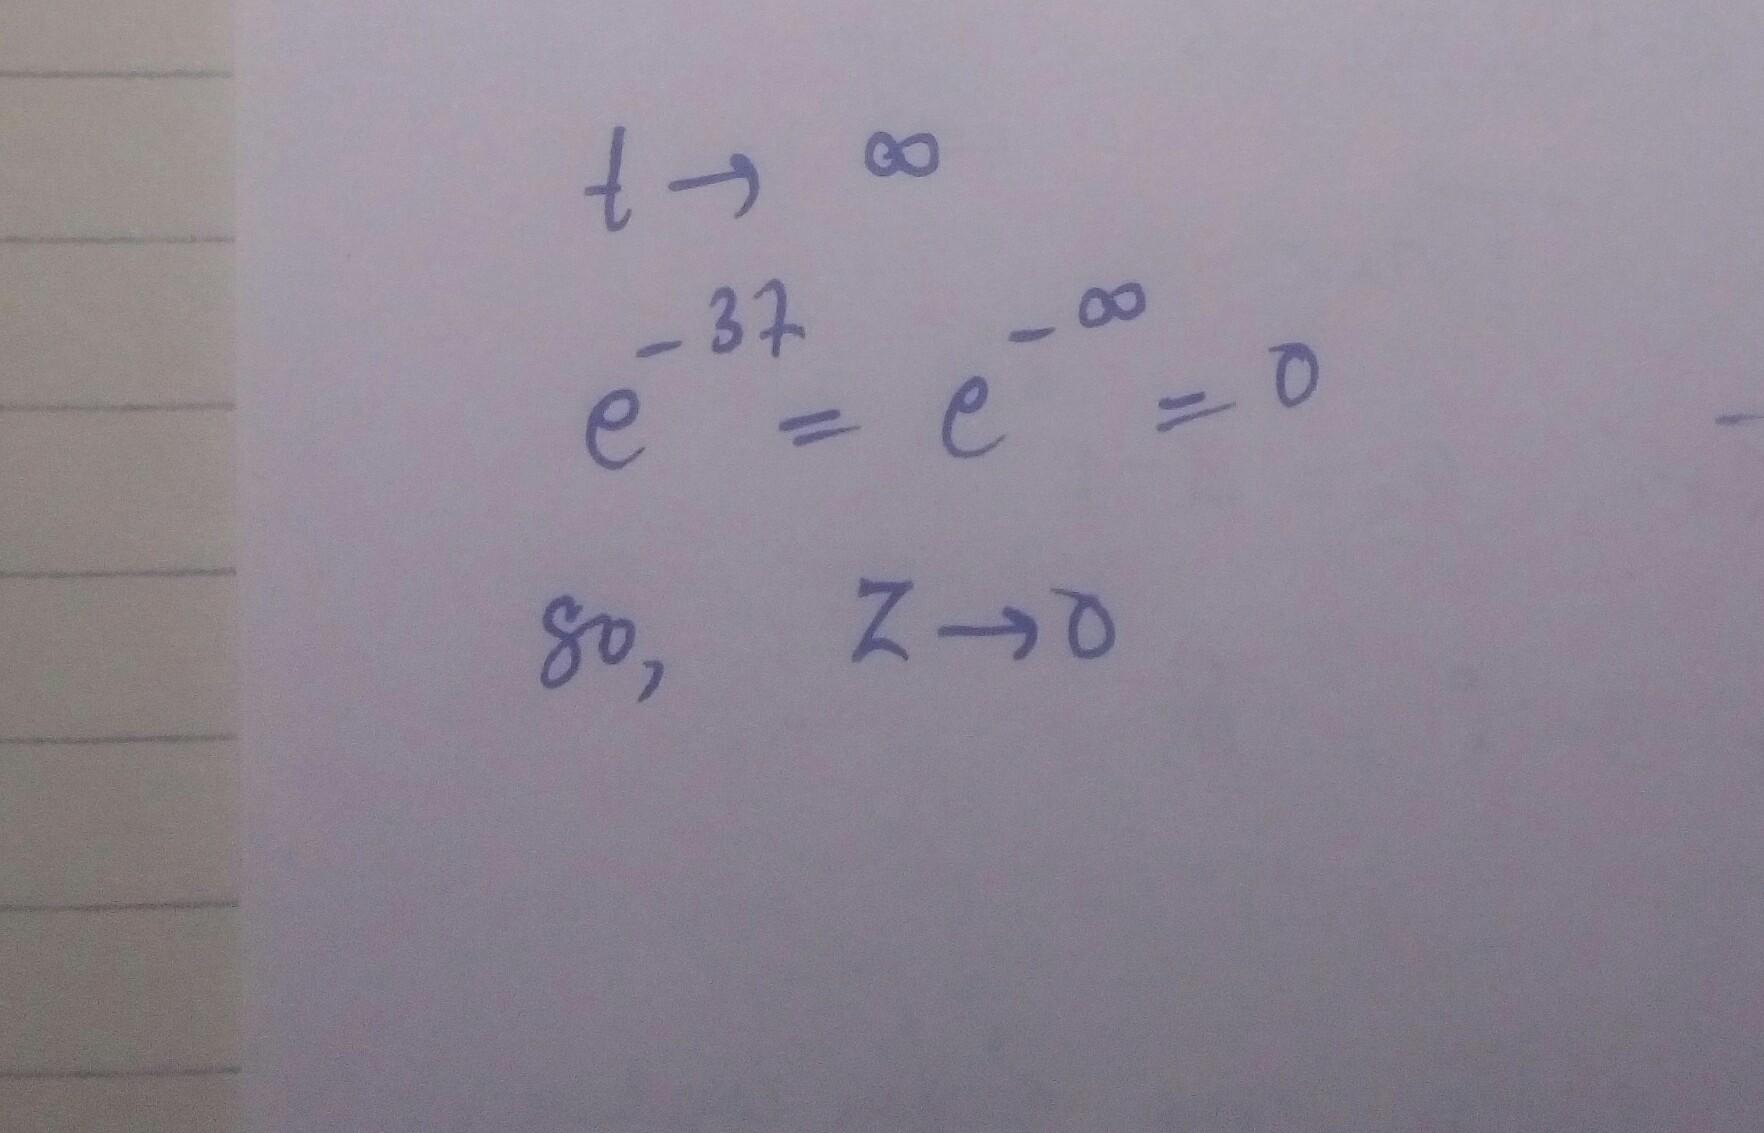 t → ∞
e^{-37} = e^{-∞} = 0
so, Z → 0